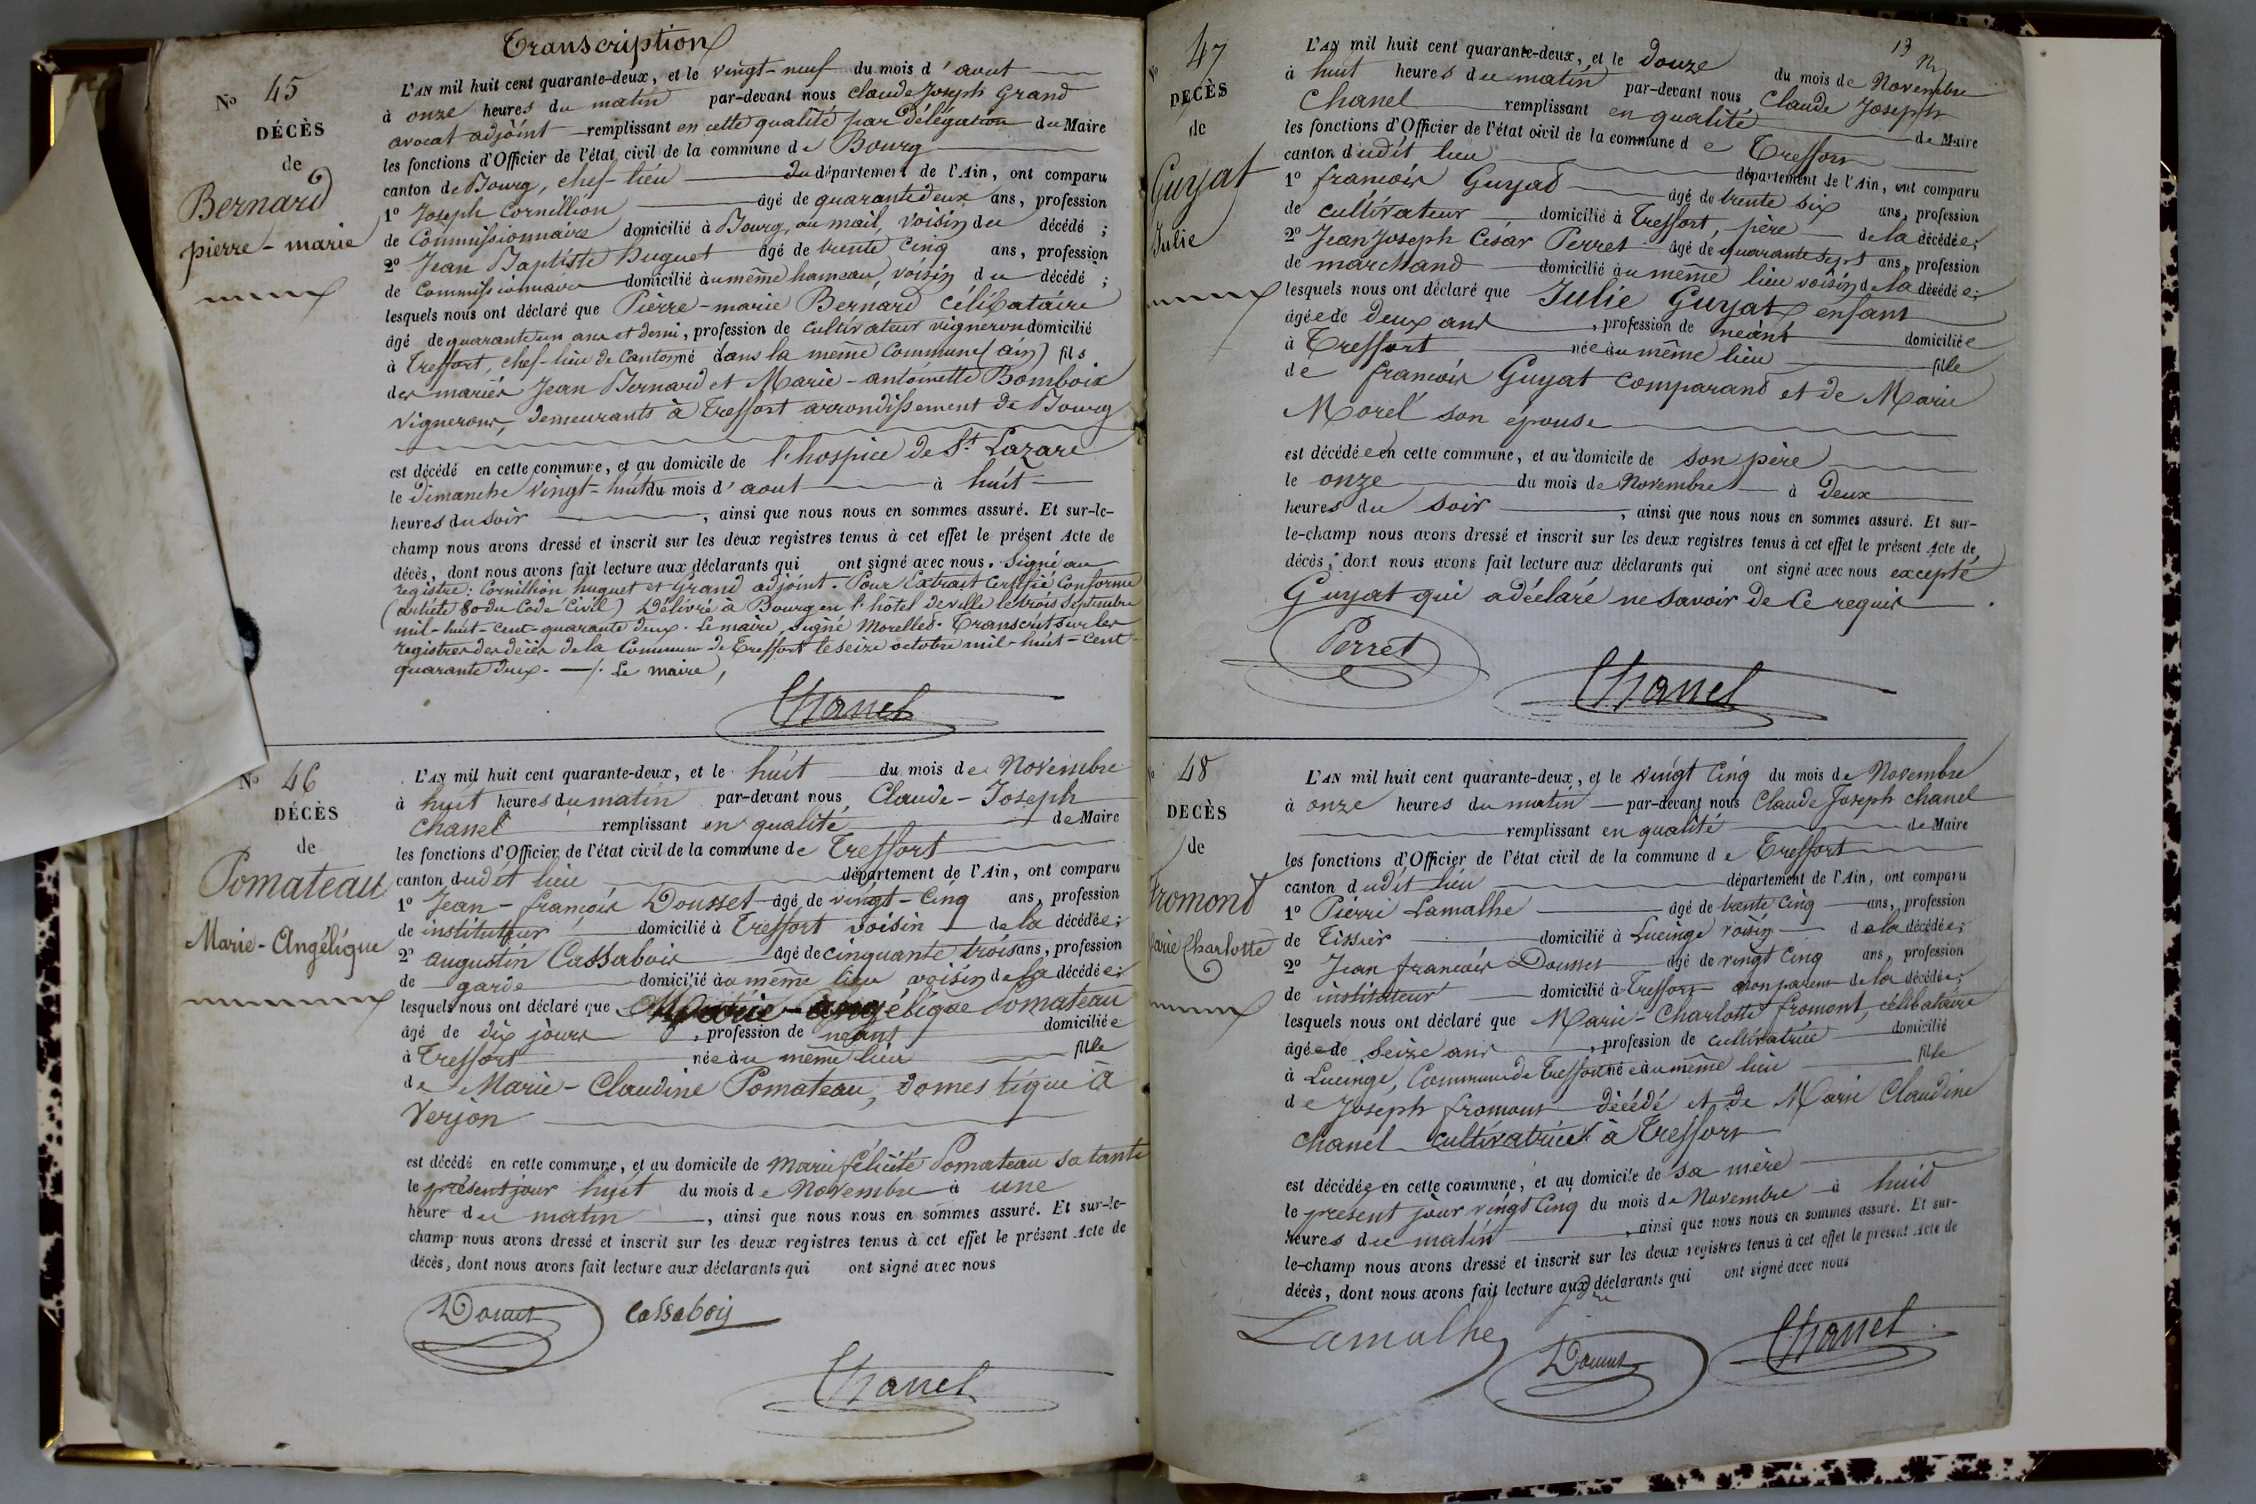 Transcription
N° 45
DÉCÈS
de
Bernard
pierre-marie
L'AN mil huit cent quarante-deux, et le vingt-neuf du mois d'aout
à onze heures du matin par-devant nous Claude Joseph Grand
avocat adjoint remplissant en cette qualité par délégation du Maire
les fonctions d'Officier de l'état civil de la commune de Bourg
canton de Bourg, chef-lieu du département de l'Ain, ont comparu
1° Joseph Cornillion âgé de quarante deux ans, profession
de Commissionnaire domicilié à Bourg, au mail, voisin du décédé ;
2° Jean Baptiste huguet âgé de trente cinq ans, profession
de Commissionnaire domicilié au même hameau, voisin du décédé ;
lesquels nous ont déclaré que Pierre-marie Bernard célibataire
âgé de quarante un ans et demi, profession de cultivateur vigneron domicilié
à Treffort, chef-lieu de Canton né dans la même Commune (ain) fils
des mariés Jean Bernard et Marie-antoinette Bomboix
vignerons, demeurants à Treffort arrondissement de Bourg
est décédé en cette commune, et au domicile de l'hospice de St Lazare
le dimanche vingt-huit du mois d'aout à huit
heures du soir, ainsi que nous nous en sommes assuré. Et sur-le-
champ nous avons dressé et inscrit sur les deux registres tenus à cet effet le présent Acte de
décès, dont nous avons fait lecture aux déclarants qui ont signé avec nous. Signé au
registre : Cornillion huguet et Grand adjoint. Pour Extrait Certifié Conforme
(article 80 du Code Civil) Délivré à Bourg en l'hôtel de ville le trois Septembre
mil-huit-cent-quarante deux. Le maire, signé Morellet. Transcrit sur les
registres des décès de la Commune de Treffort le seize octobre mil-huit-cent
quarante deux. Le maire,
Chanel
N° 46
DÉCÈS
de
Pomateau
Marie-Angélique
L'AN mil huit cent quarante-deux, et le huit du mois de Novembre
à huit heures du matin par-devant nous Claude-Joseph
Chanel remplissant en qualité de Maire
les fonctions d'Officier de l'état civil de la commune de Treffort
canton dudit lieu département de l'Ain, ont comparu
1° Jean-françois Dousset âgé de vingt-cinq ans, profession
de instituteur domicilié à Treffort voisin de la décédée ;
2° augustin Cassabois âgé de cinquante trois ans, profession
de garde domicilié au même lieu voisin de la décédée ;
lesquels nous ont déclaré que Marie-angélique Pomateau
âgé de dix jours, profession de néant domiciliée
à Treffort née au même lieu fille
de Marie-Claudine Pomateau, domestique à
Verjon
est décédé en cette commune, et au domicile de marie félicité Pomateau sa tante
le présent jour huit du mois de Novembre à une
heure du matin, ainsi que nous nous en sommes assuré. Et sur-le-
champ nous avons dressé et inscrit sur les deux registres tenus à cet effet le présent Acte de
décès, dont nous avons fait lecture aux déclarants qui ont signé avec nous
Dousset Cassabois
Chanel
13
N° 47
DÉCÈS
de
Guyat
Julie
L'AN mil huit cent quarante-deux, et le douze du mois de Novembre
à huit heures du matin par-devant nous Claude Joseph
Chanel remplissant en qualité de Maire
les fonctions d'Officier de l'état civil de la commune de Treffort
canton dudit lieu département de l'Ain, ont comparu
1° françois Guyat âgé de trente six ans, profession
de cultivateur domicilié à Treffort, père de la décédée ;
2° Jean Joseph César Perret âgé de quarante sept ans, profession
de marchand domicilié au même lieu voisin de la décédée ;
lesquels nous ont déclaré que Julie Guyat enfant
âgée de deux ans, profession de néant domiciliée
à Treffort née au même lieu fille
de françois Guyat comparant et de Marie
Morel son épouse
est décédée en cette commune, et au domicile de son père
le onze du mois de Novembre à deux
heures du soir, ainsi que nous nous en sommes assuré. Et sur-
le-champ nous avons dressé et inscrit sur les deux registres tenus à cet effet le présent Acte de
décès, dont nous avons fait lecture aux déclarants qui ont signé avec nous excepté
Guyat qui a déclaré ne savoir de ce requis.
Perret
Chanel
N° 48
DÉCÈS
de
Fromont
Marie Charlotte
L'AN mil huit cent quarante-deux, et le vingt cinq du mois de Novembre
à onze heures du matin par-devant nous Claude Joseph chanel
remplissant en qualité de Maire
les fonctions d'Officier de l'état civil de la commune de Treffort
canton dudit lieu département de l'Ain, ont comparu
1° Pierre Lamalhe âgé de trente cinq ans, profession
de Tissier domicilié à Lucinge voisin de la décédée ;
2° Jean françois Dousset âgé de vingt cinq ans, profession
de instituteur domicilié à Treffort non parent de la décédée ;
lesquels nous ont déclaré que Marie-Charlotte fromont, célibataire
âgée de seize ans, profession de cultivatrice domicilié
à Lucinge, Commune de Treffort née au même lieu fille
de Joseph fromont décédé et de Marie Claudine
Chanel cultivatrice à Treffort
est décédée en cette commune, et au domicile de sa mère
le présent jour vingt cinq du mois de Novembre à huit
heures du matin, ainsi que nous nous en sommes assuré. Et sur-
le-champ nous avons dressé et inscrit sur les deux registres tenus à cet effet le présent Acte de
décès, dont nous avons fait lecture aux déclarants qui ont signé avec nous
Lamalhe Dousset Chanel